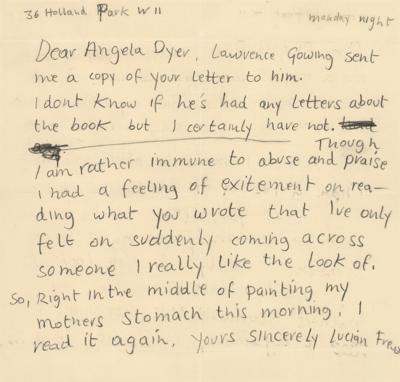 36 Holland Park W11
monday night
Dear Angela Dyer, Lawrence Gowing sent
me a copy of your letter to him.
I dont know if he's had any letters about
the book but I certainly have not.
Though
I am rather immune to abuse and praise
I had a feeling of exitement on rea-
ding what you wrote that I've only
felt on suddenly coming across
someone I really like the look of.
So, Right in the middle of painting my
mothers stomach this morning, I
read it again. yours sincerely Lucian Freud